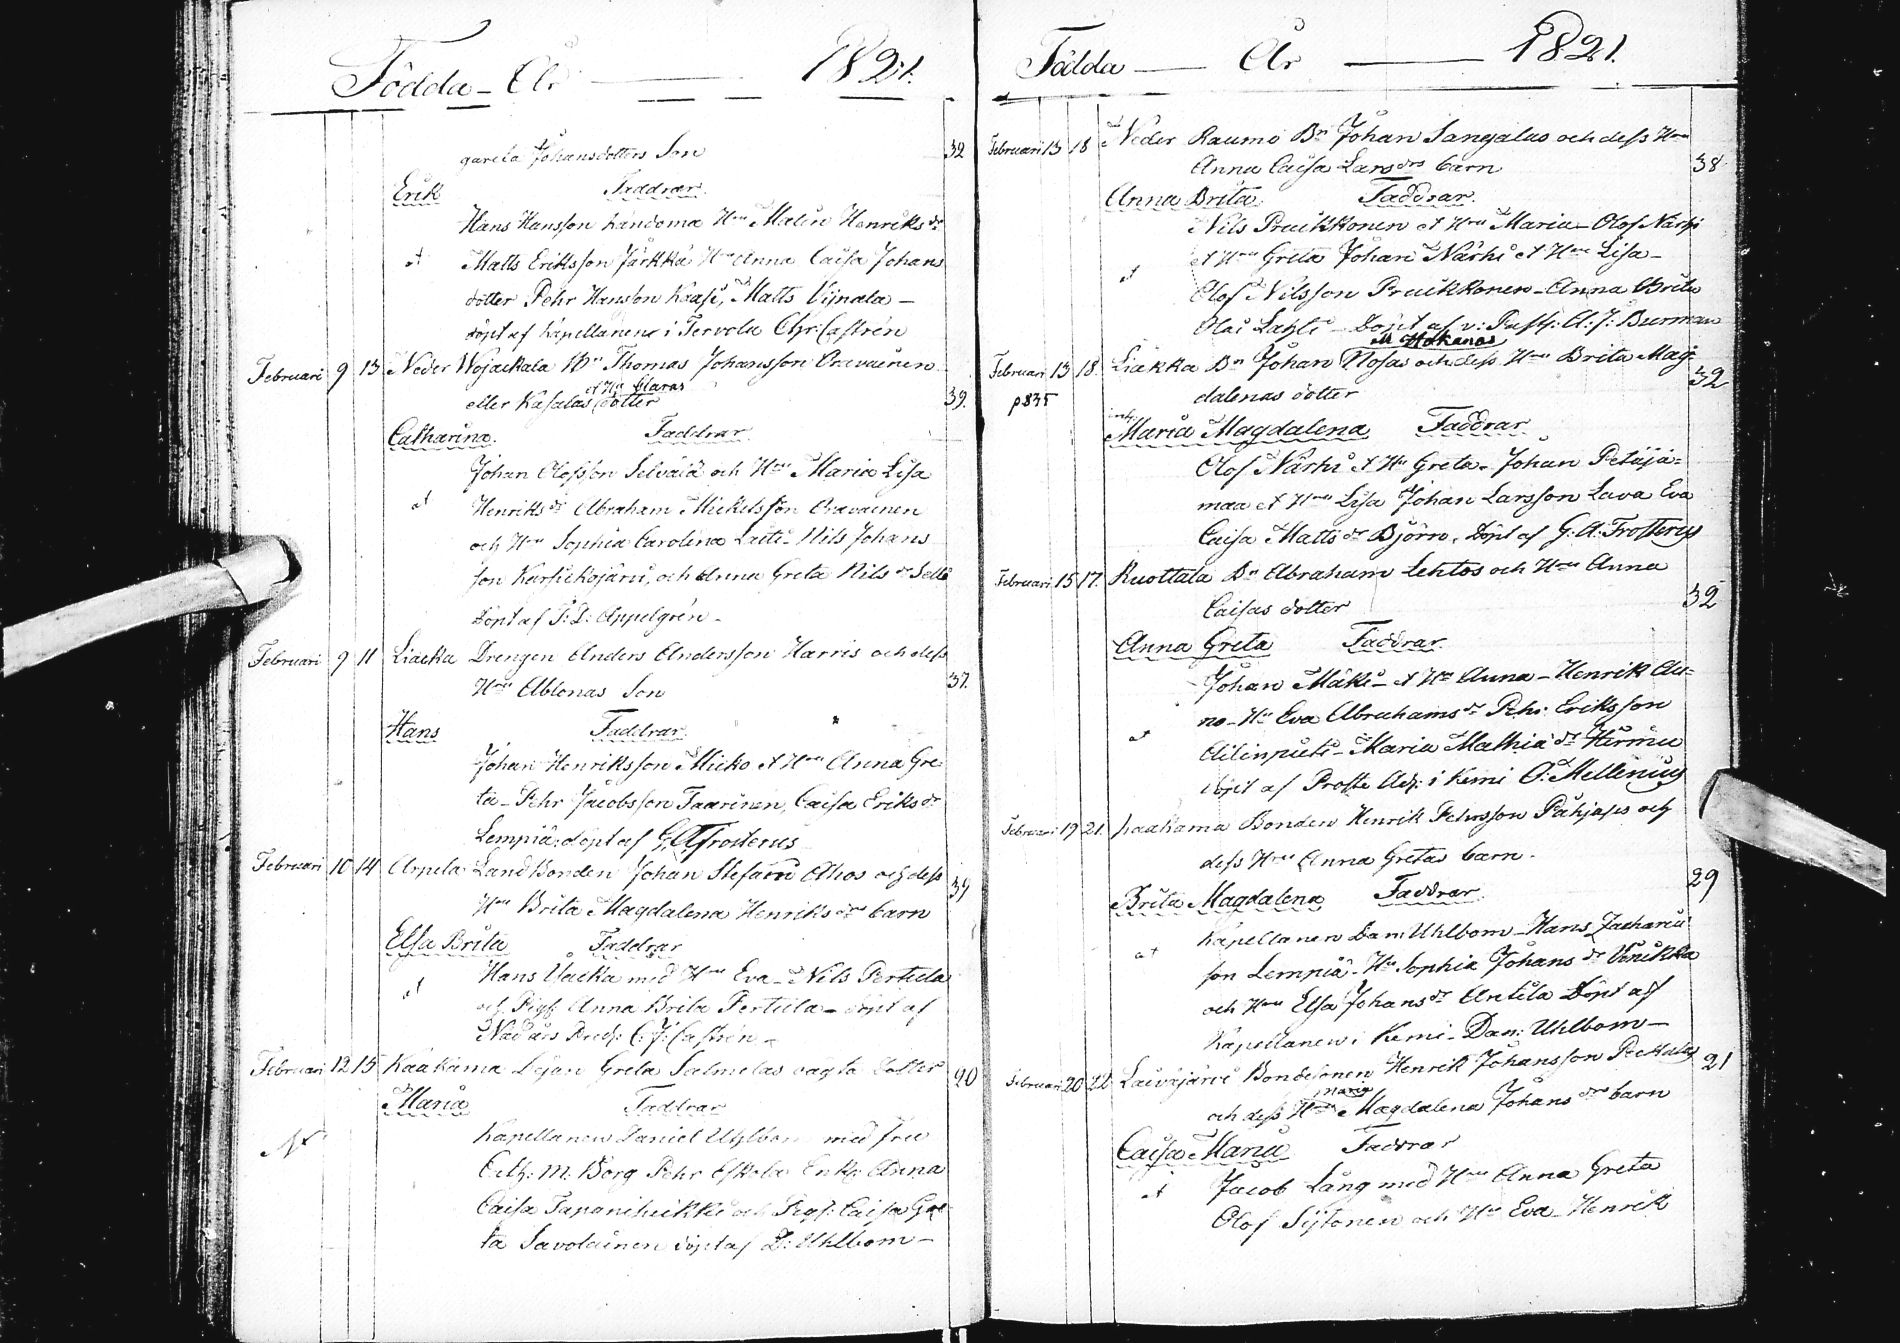 Födda - År 1821.
gareta Johansdotters Son 32
Erik Faddrar
Hans Hansson Landoma Hu Malin Henriks dr
Matts Eriksson Jårkkä Hu Anna Caisa Johans
dotter Pehr Hansson Kaasi, Matts Vijnala -
döpt af kapellanen i Tervola Chr: Castrén
Februari 9 13 Neder Wojackala Bn Thomas Johansson Oravainen
et Hu Claras
eller Kasalas dotter 39.
Catharina. Faddrar
Johan Olofsson Selvälä och Hu Maria Lisa
Henriks dr Abraham Mickelsson Oravainen
och Hu Sophia Carolina Laiti - Nils Johans
son Karsickojärvi, och Anna Greta Nils dr
döpt af Appelgrén -
Februari 9 11 Liacka Drengen Anders Andersson Harris och dess
Hus Ablonas Son 37.
Hans Faddrar
Johan Henriksson Micko et Hu Anna Gre
ta - Pehr Jacobsson Taarinen, Caisa Eriks dr
Lempiä, döpt af G A Frosterus
Februari 10 14 Arpela Landbonden Johan Stefann Ahos och dess 34
Hus Brita Magdalena Henriks drs barn
Elsa Brita Faddrar
Hans Yacka med Hu Eva - Nils Pertula
och Pig: Anna Brita Pertula - döpt af
Nådårs Pred: C. J: Castrén -
Februari 12 15 Kaakama Lejan Greta Salmelas oägta dotter 20
Maria Faddrar
Kapellanen Daniel Uhlbom med fru
Cath: M: Borg Pehr Eskola Enk: Anna
Caisa Tapaniheikki och Pig: Caisa Gre
ta Savolainen döpt af D: Uhlbom -
Födda - År - 1821.
Februari 13 18 Neder Raumo Bn Johan Sangalas och dess Hus
Anna Caisa Lars drs barn 38
Anna Brita Faddrar.
Nils Pruikkonen et Hu Maria - Olof Närhi
et Hu Greta Johan Närhi et Hu Lisa -
Olof Nilsson Pruikkonen - Anna Brita
Olai Lahti - Döpt af v: Past: A: J: Burman
M Hökanas
Februari 13 18. Liakka Bn Johan Plosas och dess Hus Brita Mag= 32
p835 dalenas dotter
Maria Magdalena Faddrar
Olof Närhi et Hu Greta - Johan Petäjä=
maa et Hu Lisa Johan Larsson Lava Eva
Caisa Matts dr Björn, döpt af G. A: Frosterus
Februari 15 17. Ruottala Bn Abraham Lehtos och Hus Anna
Caisas dotter 32
Anna Greta Faddrar.
Johan Mäki - et Hu Anna - Henrik Au=
no - Hu Eva Abrahams dr Pehr Eriksson
Ailinpieti - Maria Mathiä dr Hirmu
döpt af Proste Adj: i Kemi O: Mellenius
Februari 19 21. Kaakama Bonden Henrik Pehrsson Påhjases och
dess Hus Anna Gretas barn. 29
Brita Magdalena Faddrar
Kapellanen Dan: Uhlbom - Hans Zachariä
son Lempiä - Hu Sophia Johans dr Venikka
och Hu Elsa Johans dr Antila Döpt af
Kapellanen i Kemi - Dan: Uhlbom -
Februari 20 22 Laivajärvi Bondesonen Henrik Johansson Pietalas 21
Maria
och dess Hus Magdalena Johans drs barn
Caisa Maria Faddrar
Jacob Lång med Hu Anna Greta
Olof Sijtonen och Hu Eva - Henrik